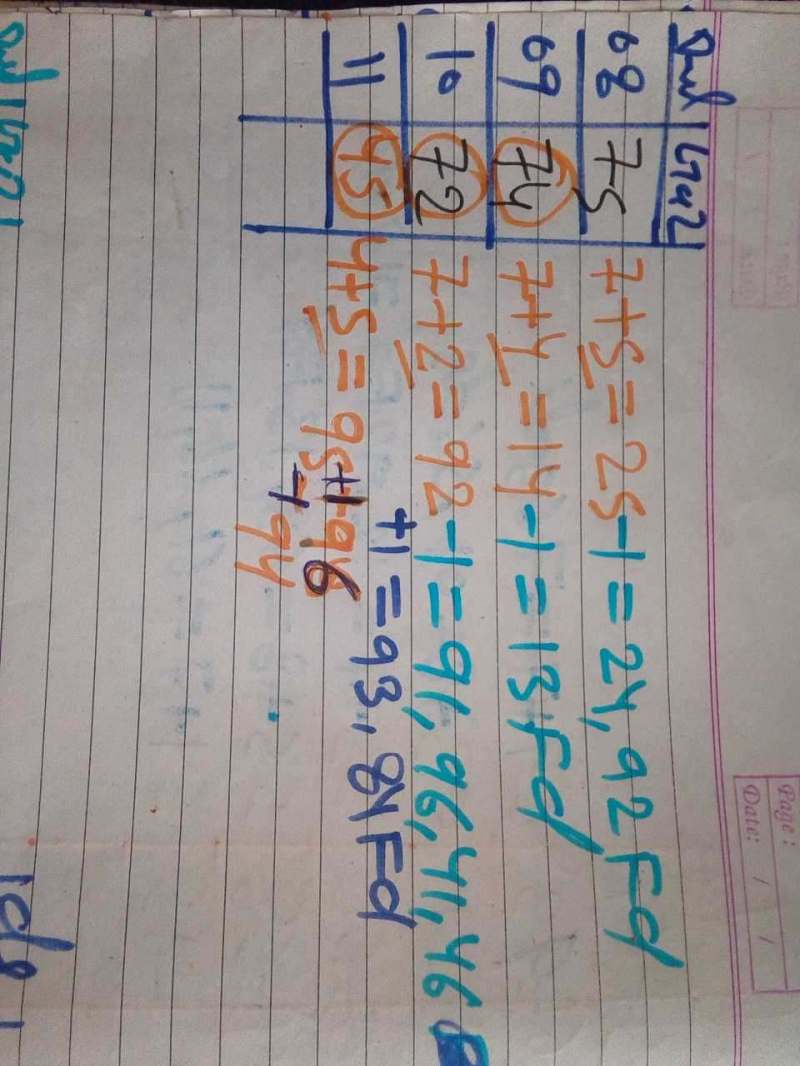 Page :
Date: / /
Jul Gali
08 75 7+5=25-1=24,92 Fd
09 74 7+4=14-1=13Fd
10 72 7+2=92-1=91,96,41,46
+1=93,84Fd
11 45 4+5=95+1-96
-1 94